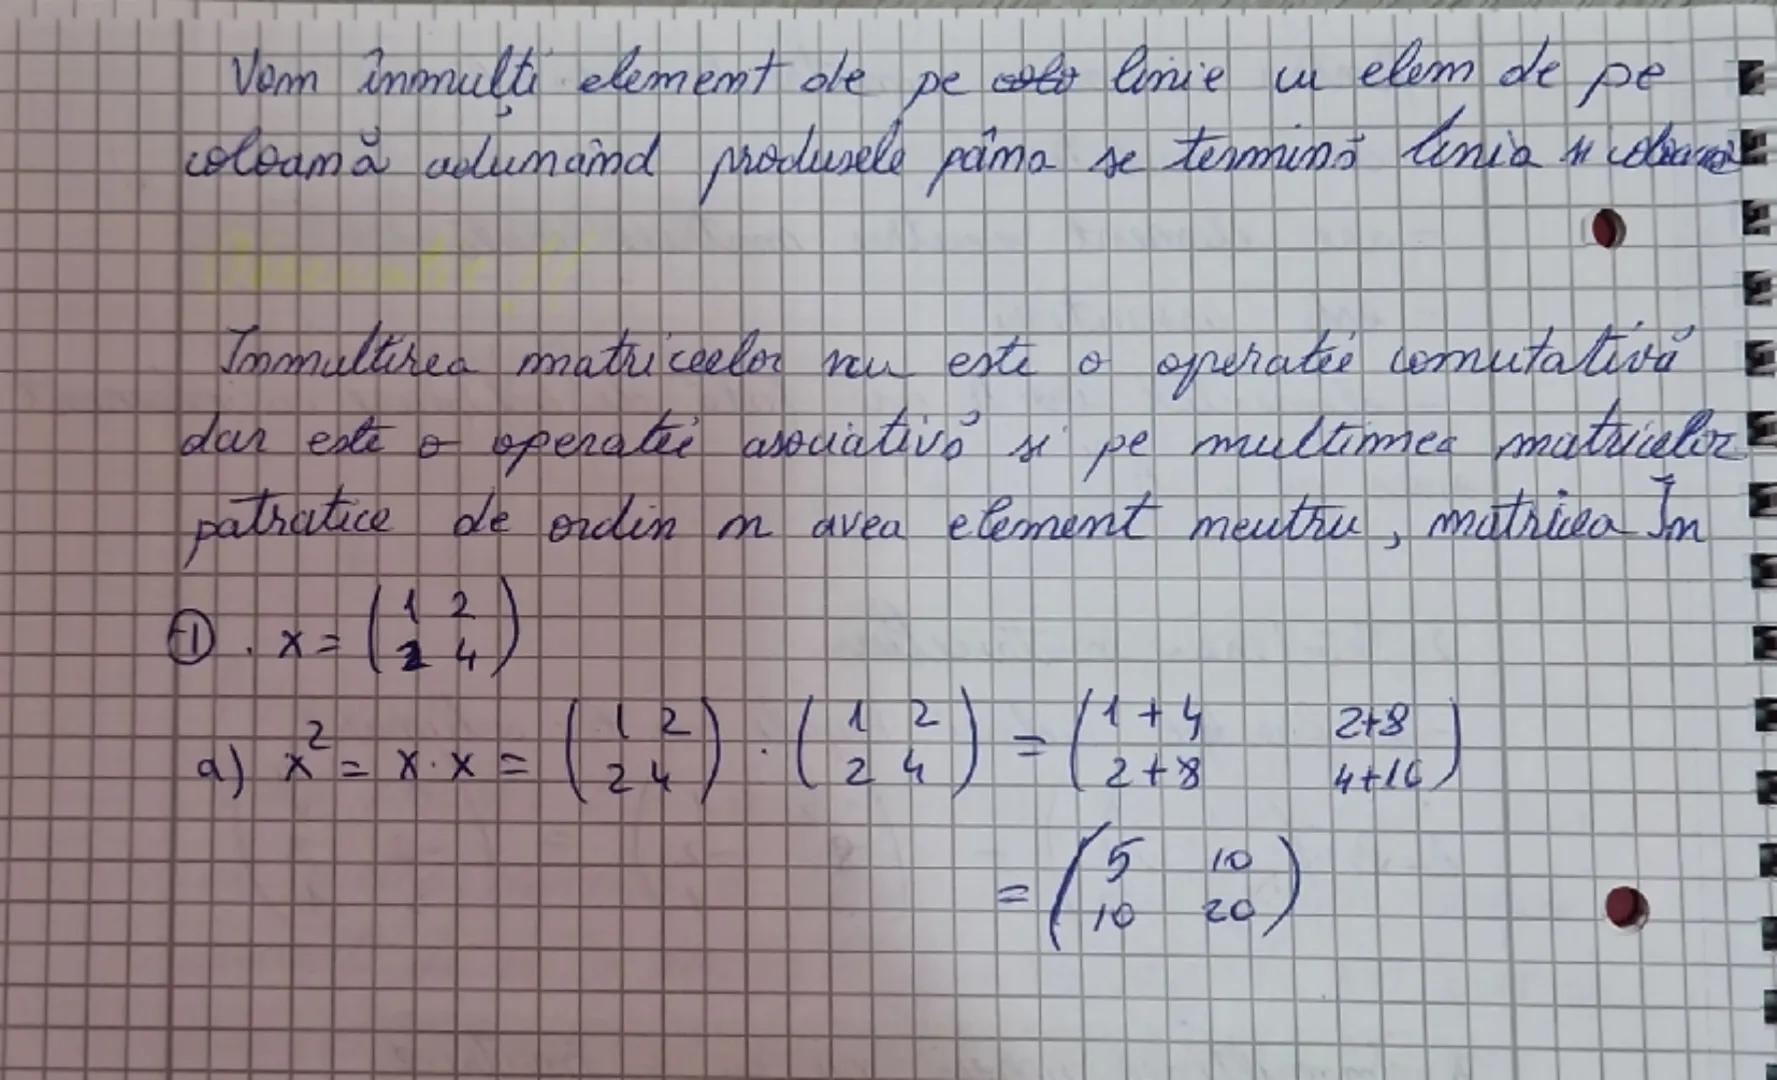 Vom înmulți element de pe linie cu elem de pe
coloană adunând produsele pâna se termină linia si coloana
Observatie !!
Inmultirea matricelor nu este o operatie comutativă
dar este o operatie asociativă si pe multimea matricelor
patratice de ordin n avea element neutru, matricea In
① . x = ( 1 2
2 4 )
a) x² = x · x = ( 1 2
2 4 ) · ( 1 2
2 4 ) = ( 1+4 2+8
2+8 4+16 )
= ( 5 10
10 20 )